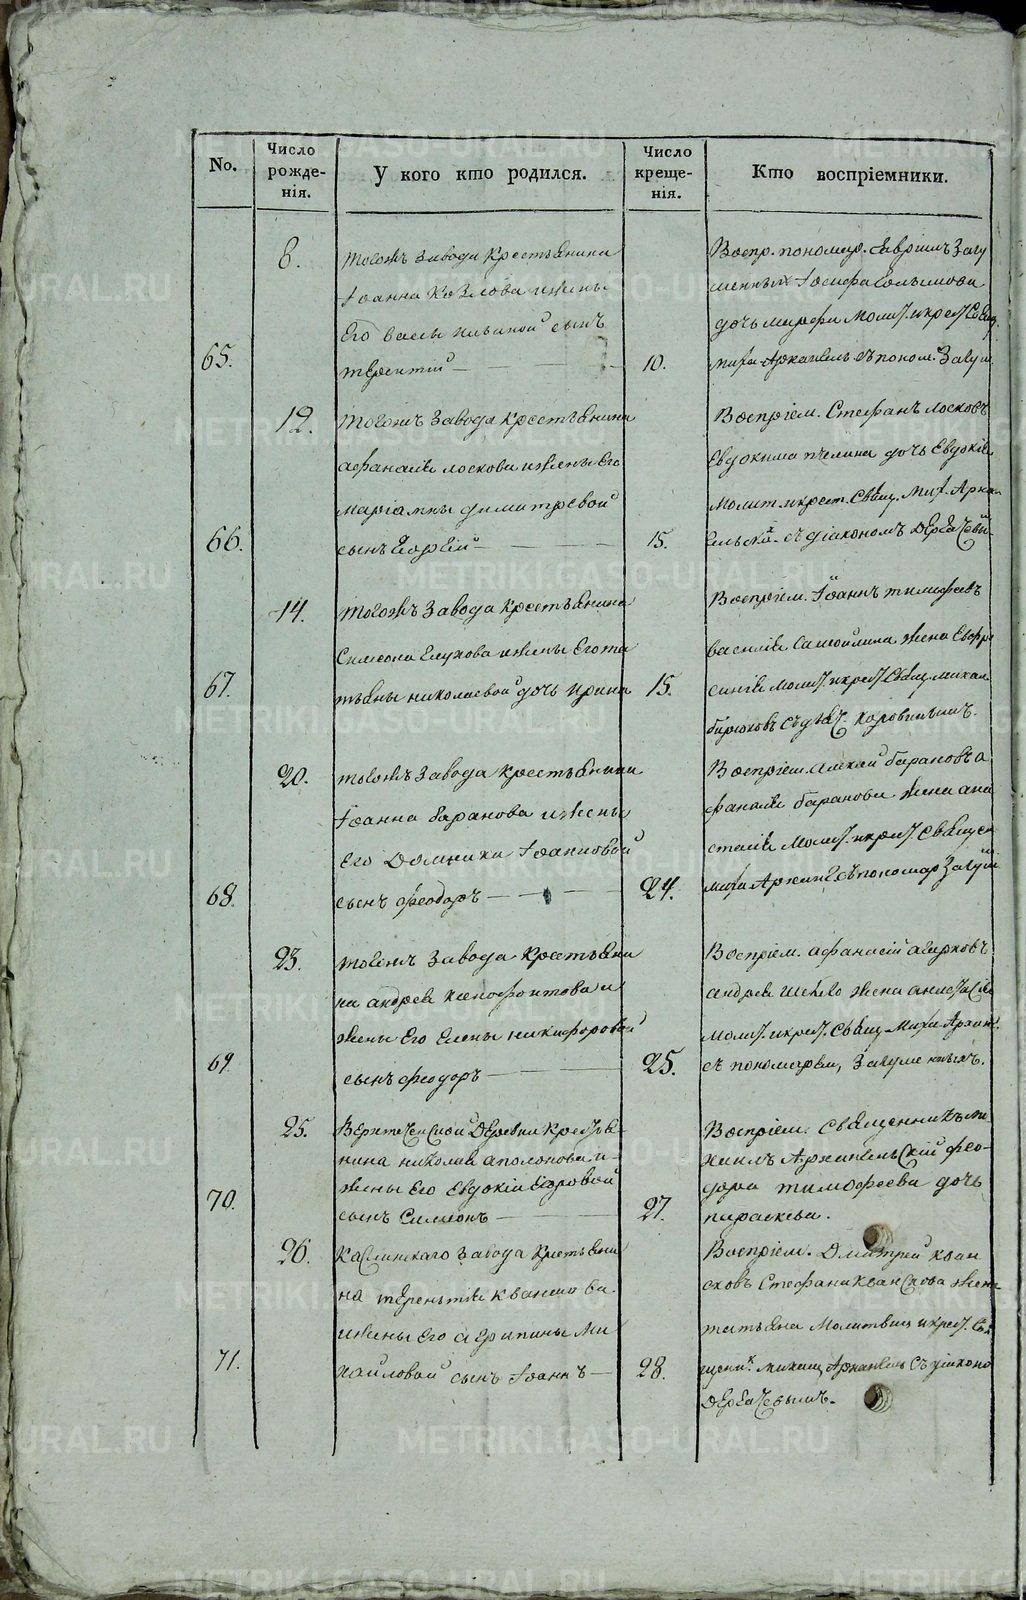 No.
Число рожде- нія.
У кого кто родился.
Число креще- нія.
Кто воспріемники.
65.
8.
тогожъ завода крестьянина
Іоанна Козлова и жены
Его васы ильиной сынъ
терентій
10.
Воспр. пономар. Гавріилъ Загу
менныхъ Іосифа
дочь марфа молит. и крест. Свящ.
миха Архангель съ поном. Загум
66.
12.
тогожъ завода крестьянина
афанасія лоскова и жены Его
маріамны димитревой
сынъ Георгій
15.
Воспріем. Стефанъ лосковъ
Евдокима пчелина дочь Евдокія
молит. и крест. Свящ. Мих. Архан
ельскій съ діакономъ Дерягевы
67.
14.
тогожъ завода крестьянина
Симеона Глухова и жены Его та
тьяны николаевой дочь ирина
15.
Воспріем. Іоаннъ тимофеевъ
василія Самойлина жена Евфро
синія молит. и крест. Свящ. михаи
бирюковъ съ дьяч. Коровинымъ.
68.
20.
тогожъ завода крестьянина
Іоанна баранова и жены
Его Домники Іоанновой
сынъ феодоръ
24.
Воспріем. Алексей барановъ а
фанасія баранова жена ана
стасія молит. и крест. Священ
миха Арханг. съ пономар Загум
69
23.
тогожъ завода крестьяни
на андрея ксенофонтова и
жены Его Елены никифоровой
сынъ феодоръ
25.
Воспріем. афанасій агарковъ
андрея жена анастасія
молит. и крест. Свящ Миха Архан.
съ пономарем, Загуменныхъ.
70.
25.
деревни крестья-
нина николая аполонова и
жены Его Евдокіи Егоровой
сынъ Симеонъ
27.
Воспріем. Священникъ ми
хаилъ Архангельскій фео-
дора тимофеева дочь
параскева.
71.
26.
Каслинскаго завода крестьяни
на терентія квашнова
и жены Его агрипины Ми
хайловой сынъ Іоаннъ
28.
Воспріем. Дмитрей кван
сковъ Стефана Квансkова жена
татьяна молитвил и крест. Св
щенн. михаил Архангель съ діакона
Дерягевымъ.
METRIKI.GASO-URAL.RU